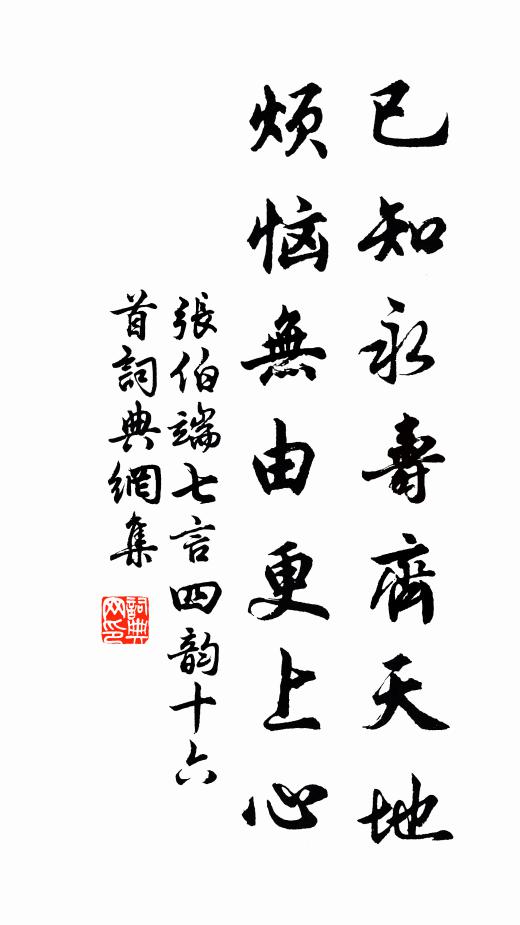 已知永壽齊天地
煩惱無由更上心
張伯端七言四韵十六
首詞典網集
詞典
网印